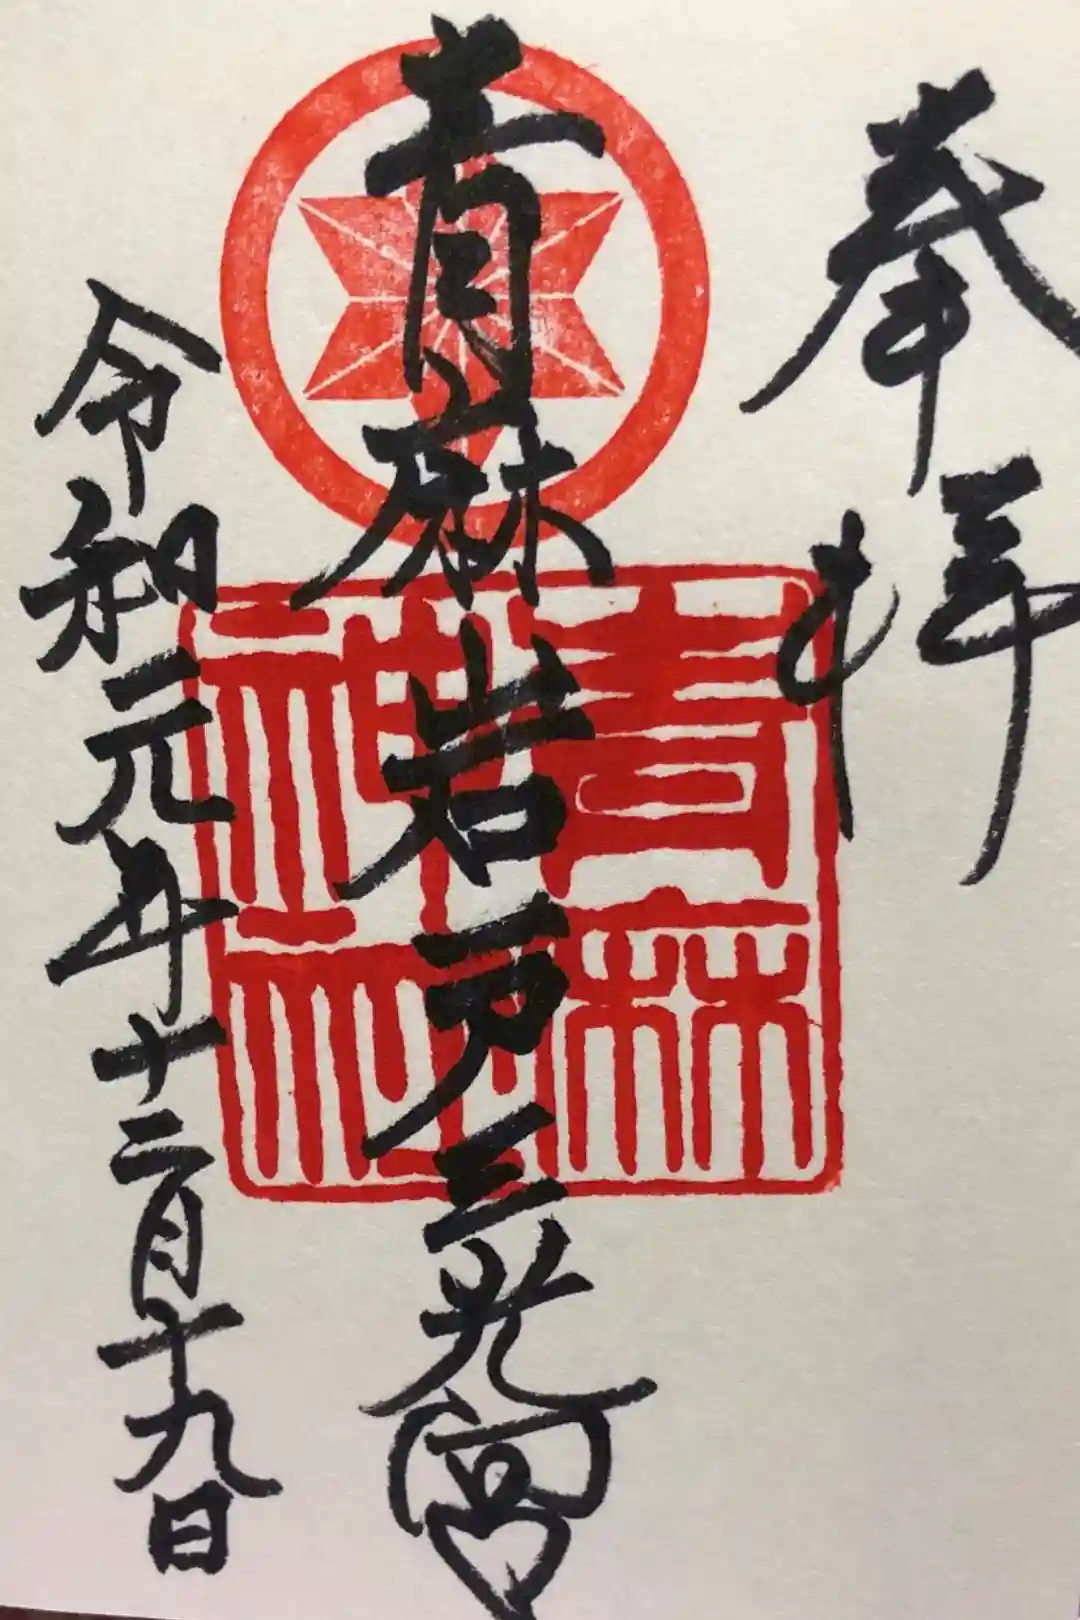 奉拝
青麻岩戸三光宮
青麻神社
令和元年十二月十九日